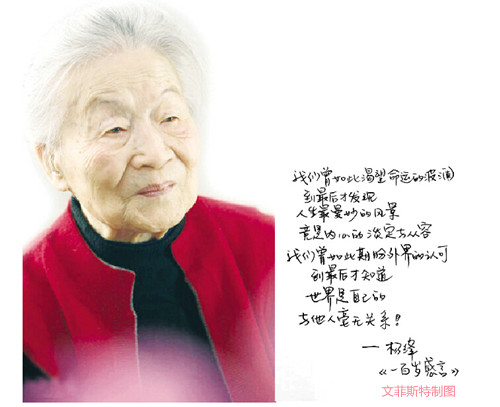 我们曾如此渴望命运的波澜
到最后才发现
人生最曼妙的风景
竟是内心的淡定与从容
我们曾如此期盼外界的认可
到最后才知道
世界是自己的
与他人毫无关系!
一杨绛
《一百岁感言》
文菲斯特制图